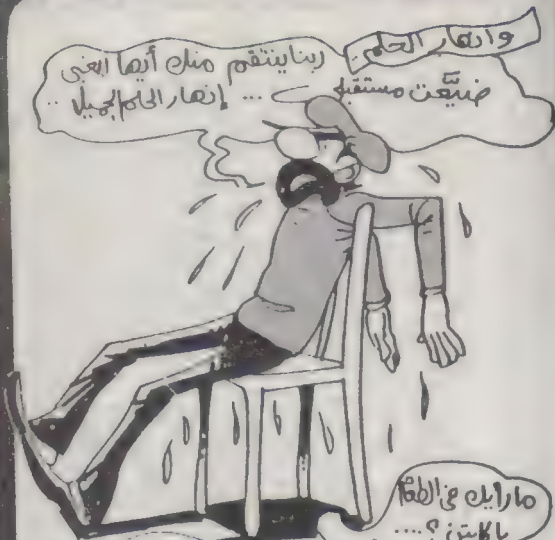 وانهار الحلم
ربنا ينتقم منك أيها الغبى
ضيَّعت مستقبلى ... إنهار الحلم الجميل ..
ما رأيك فى
يا كابتن ؟ ....